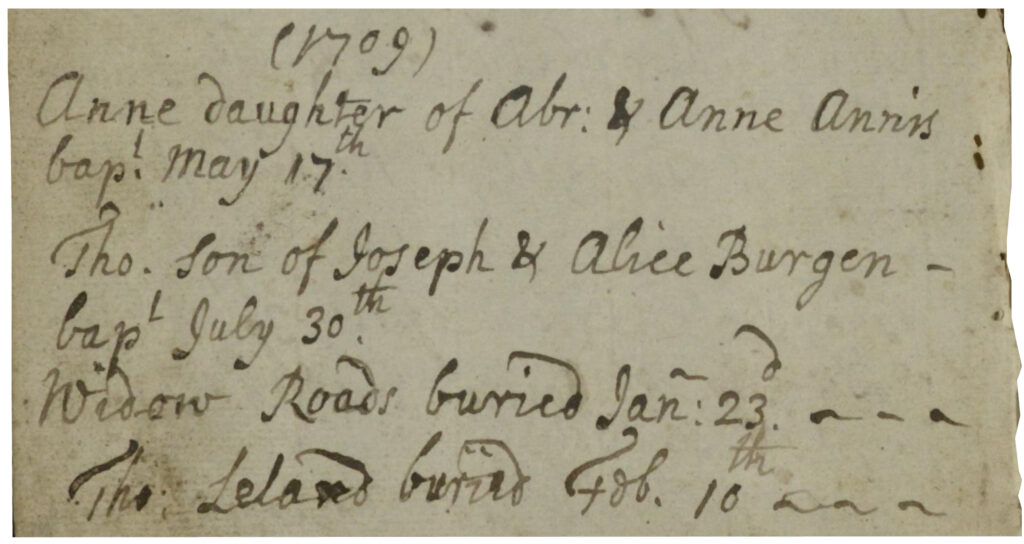 (1709)
Anne daughter of Abr: & Anne Annis
bap.t May 17.th
Tho. son of Joseph & Alice Burgen -
bapt July 30.th
Widow Roads buried Jan̄: 23.d - - -
Tho: Leland buried Feb. 10th - - -